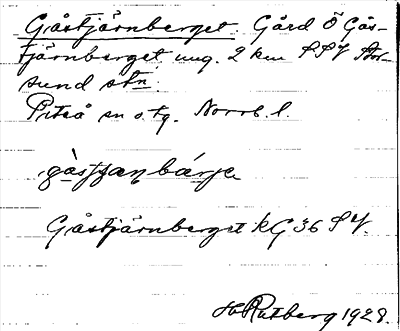 Gåstjärnberget. Gård Ö Gås-
tjärnberget ung. 2 km SSV Stor-
sund stn.
Piteå sn o. tg. Norrb. l.
Gåstjärnberget kG 36 SV.
H. Rutberg 1928.